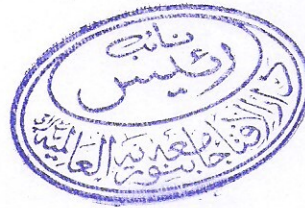 نائب
رئيس
دارالافتا جامعه بنوريه العالميه